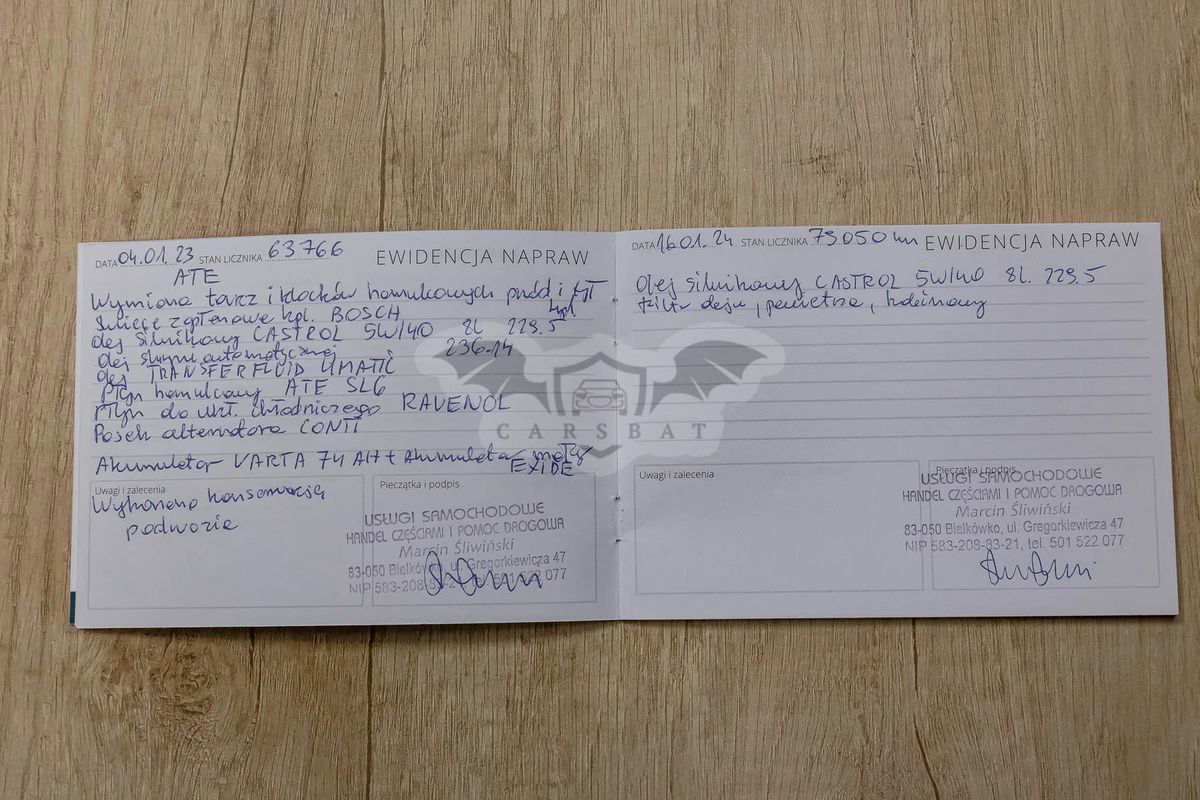 DATA 04.01.23 STAN LICZNIKA 63766 EWIDENCJA NAPRAW
ATE
Wymiana tarcz i klocków hamulcowych przód i tył
Świece zapłonowe kpl. BOSCH kpl.
Olej silnikowy CASTROL 5W/40 8L 229.5
Olej skrzyni automatycznej 236.14
Olej TRANSFERFLUID
Płyn hamulcowy ATE SL6
Płyn do ukł. chłodniczego RAVENOL
Pasek alternatora CONTI
Akumulator VARTA 74 AH + Akumulator mały
EXIDE
Uwagi i zalecenia
Wykonano konserwację
podwozia
Pieczątka i podpis
USŁUGI SAMOCHODOWE
HANDEL CZĘŚCIAMI I POMOC DROGOWA
Marcin Śliwiński
83-050 Bielkówko, ul. Gregorkiewicza 47
NIP 583-208-83-21, tel. 501 522 077
DATA 16.01.24 STAN LICZNIKA 73050 km EWIDENCJA NAPRAW
Olej silnikowy CASTROL 5W/40 8L. 229.5
filtr oleju, powietrza, kabinowy
Uwagi i zalecenia
Pieczątka i podpis
USŁUGI SAMOCHODOWE
HANDEL CZĘŚCIAMI I POMOC DROGOWA
Marcin Śliwiński
83-050 Bielkówko, ul. Gregorkiewicza 47
NIP 583-208-83-21, tel. 501 522 077
CARSBAT